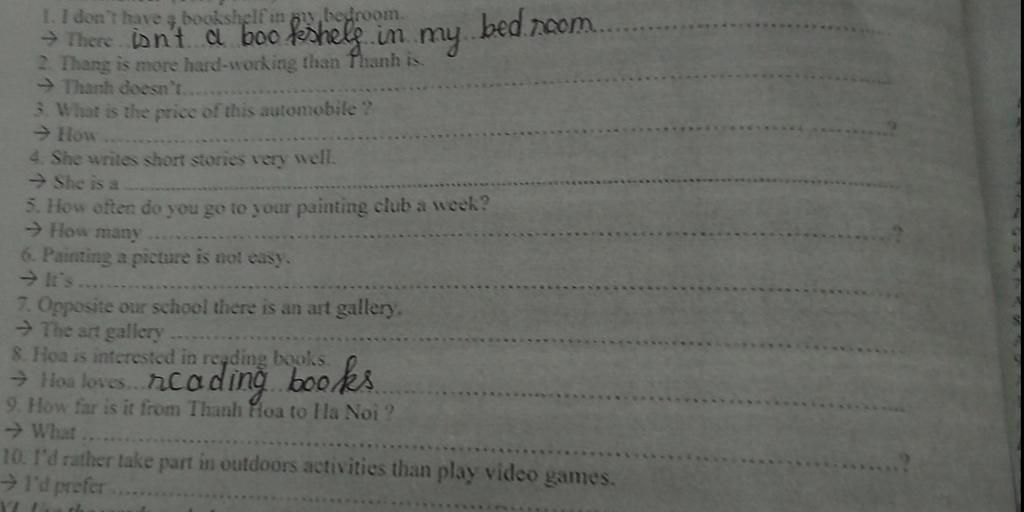 1. I don't have a bookshelf in my bedroom.
→ There isn't a bookshelf in my bedroom
2. Thang is more hard-working than Thanh is.
→ Thanh doesn't
3. What is the price of this automobile ?
→ How ?
4. She writes short stories very well.
→ She is a
5. How often do you go to your painting club a week?
→ How many ?
6. Painting a picture is not easy.
→ It's
7. Opposite our school there is an art gallery.
→ The art gallery
8. Hoa is interested in reading books.
→ Hoa loves reading books
9. How far is it from Thanh Hoa to Ha Noi ?
→ What ?
10. I'd rather take part in outdoors activities than play video games.
→ I'd prefer